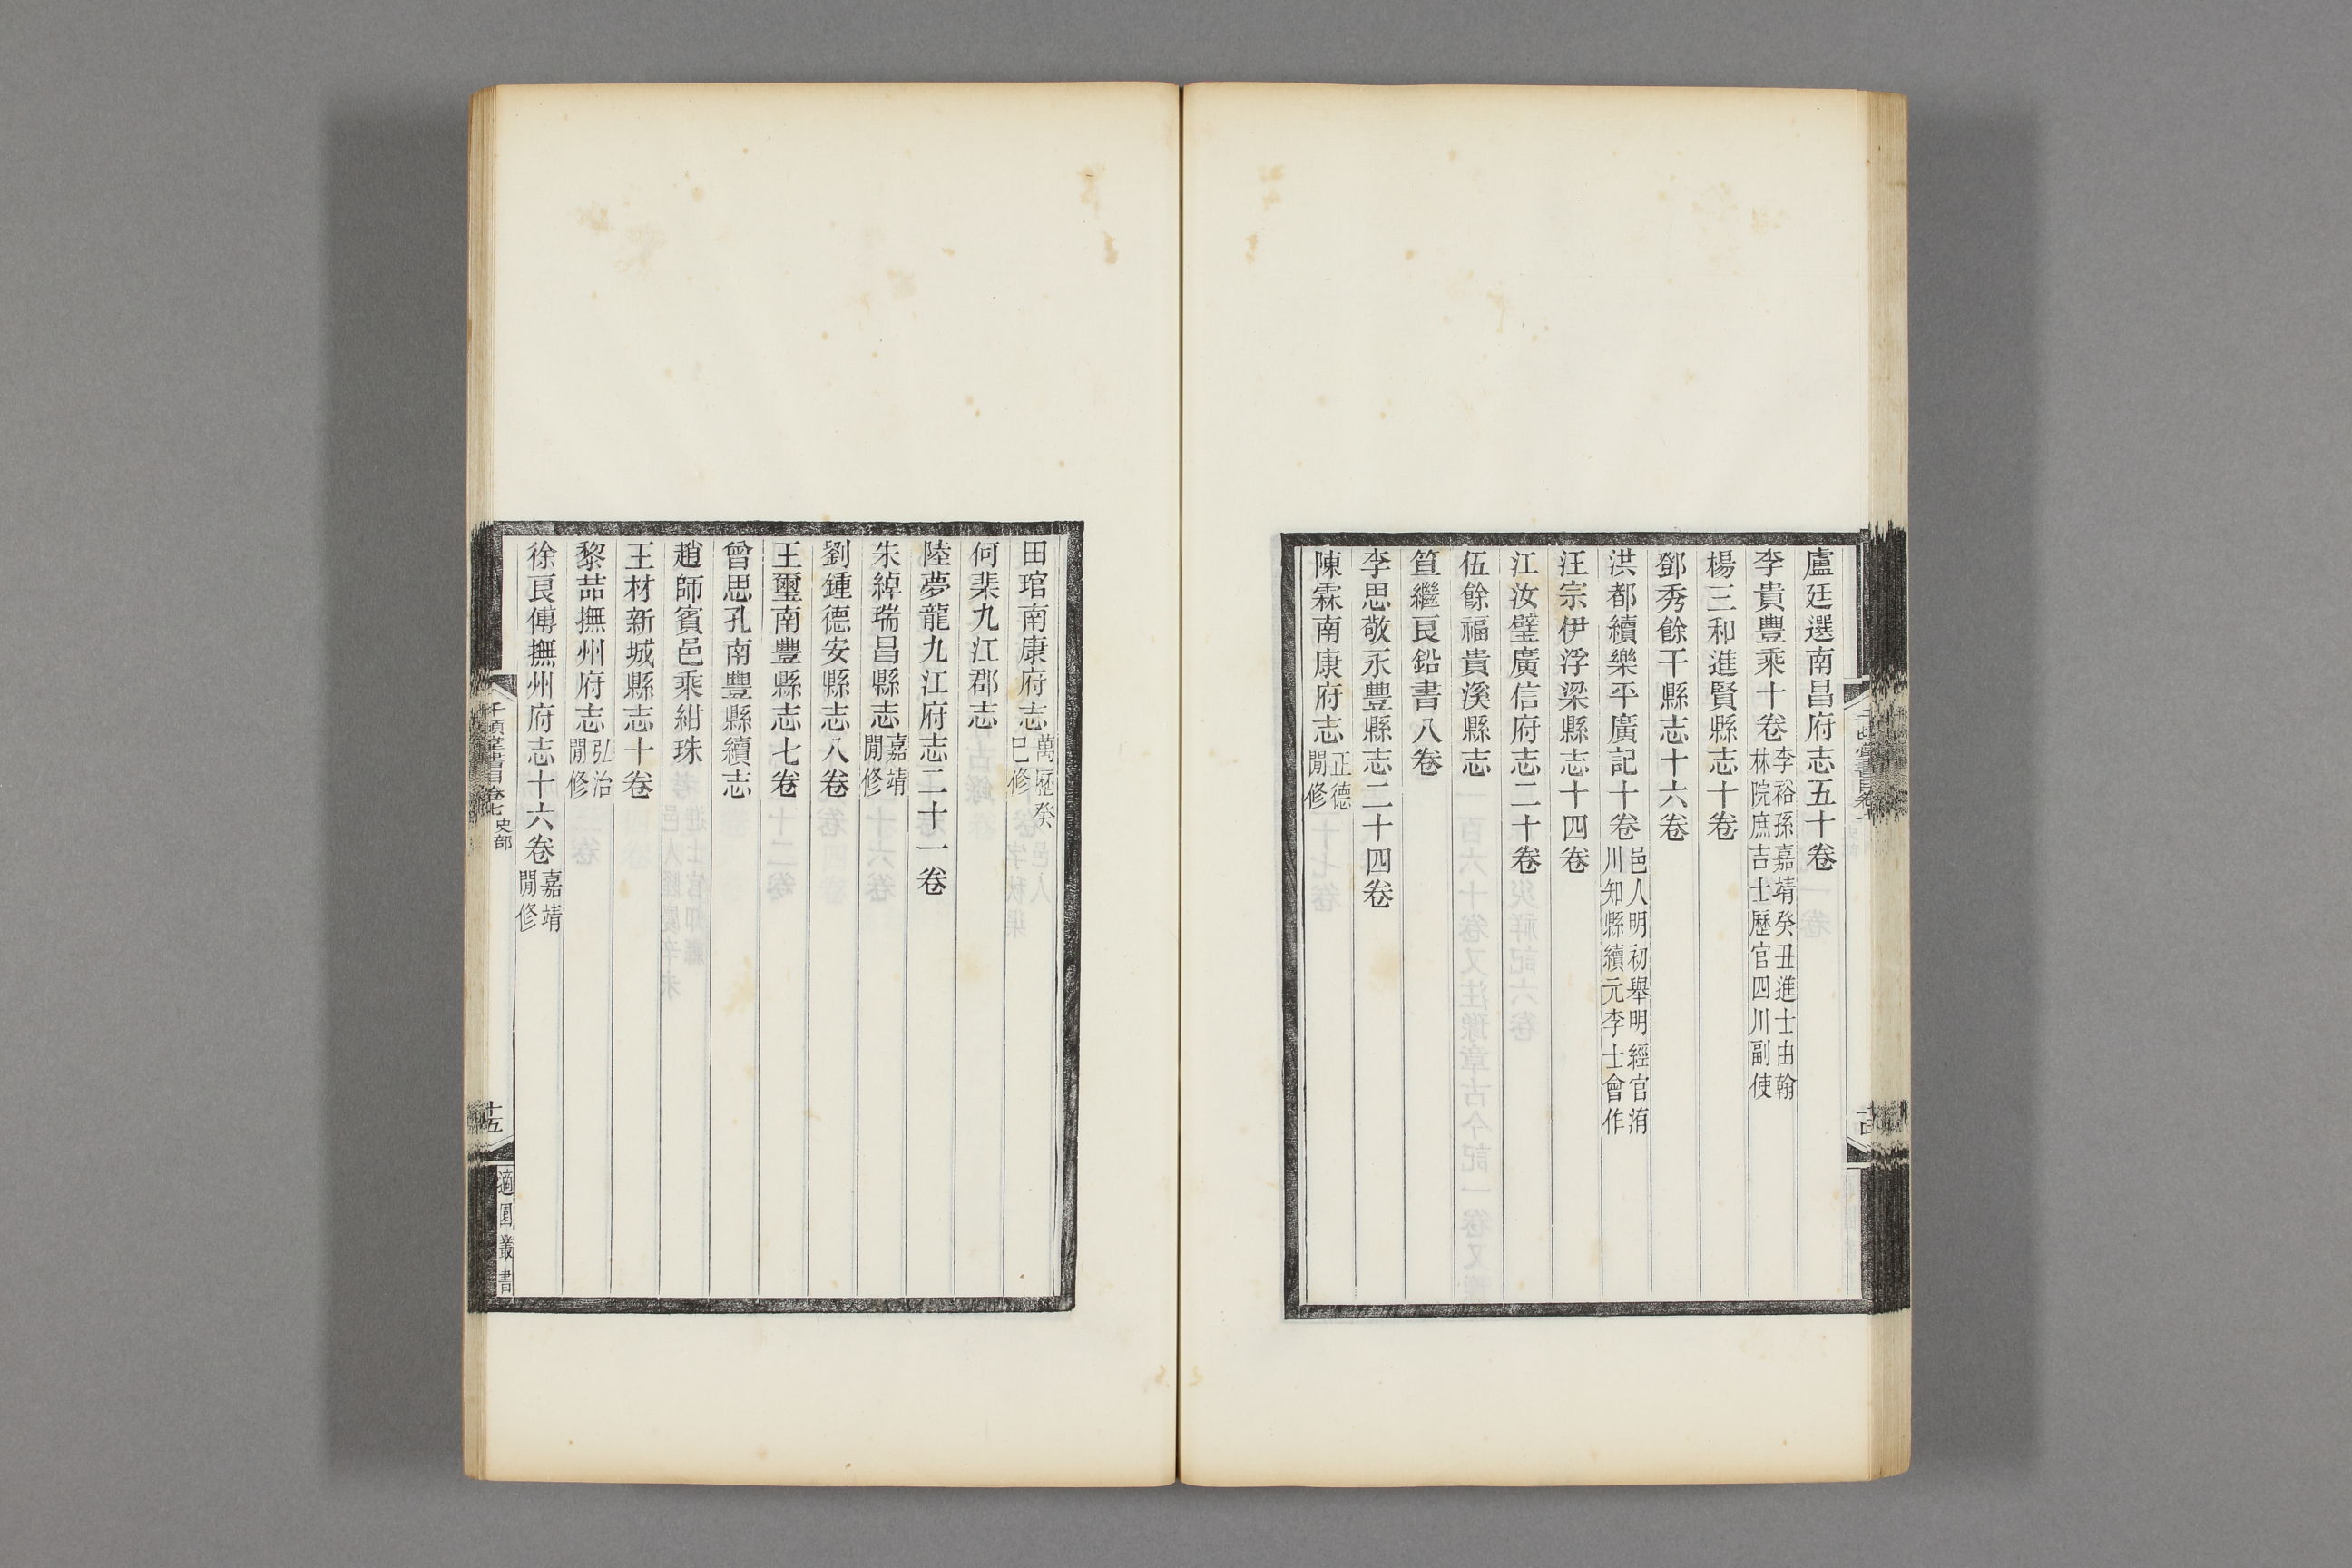 盧廷選南昌府志五十卷
李貴豐乘十卷李裕孫嘉靖癸丑進士由翰林院庶吉士歷官四川副使
楊三和進賢縣志十卷
鄧秀餘干縣志十六卷
洪都續樂平廣記十卷邑人明初舉明經官洧川知縣續元李士會作
汪宗伊浮梁縣志十四卷
江汝璧廣信府志二十卷
伍餘福貴溪縣志
笪繼良鉛書八卷
李思敬永豐縣志二十四卷
陳霖南康府志正德閒修
田琯南康府志萬歷癸巳修
何棐九江郡志
陸夢龍九江府志二十一卷
朱綽瑞昌縣志嘉靖閒修
劉鍾德安縣志八卷
王璽南豐縣志七卷
曾思孔南豐縣續志
趙師賓邑乘紺珠
王材新城縣志十卷
黎喆撫州府志弘治閒修
徐良傅撫州府志十六卷嘉靖閒修
千頃堂書目卷七 史部
十五
適園叢書